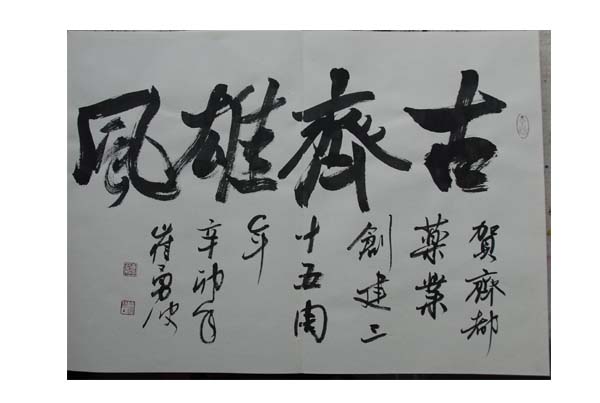 古齊雄風
賀齊都
薬業
創建三
十五周
年
辛卯
崔勇波